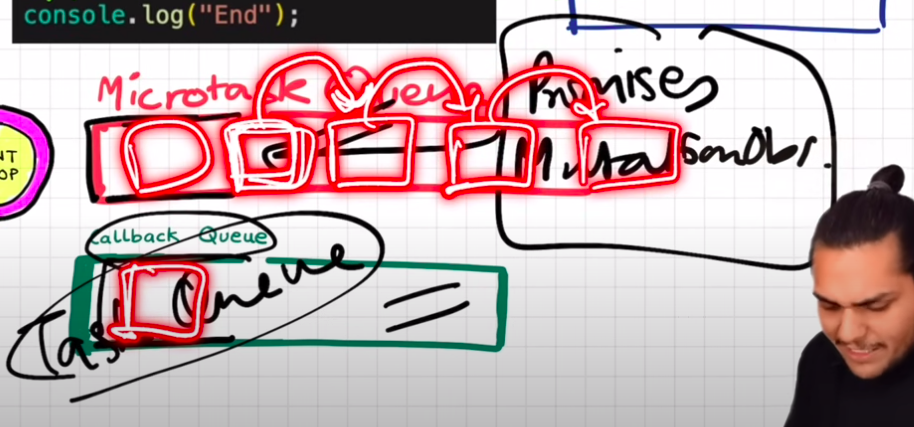 console.log("End");
Microtask Queue
Promises
NT
OP
Callback Queue
Task Queue